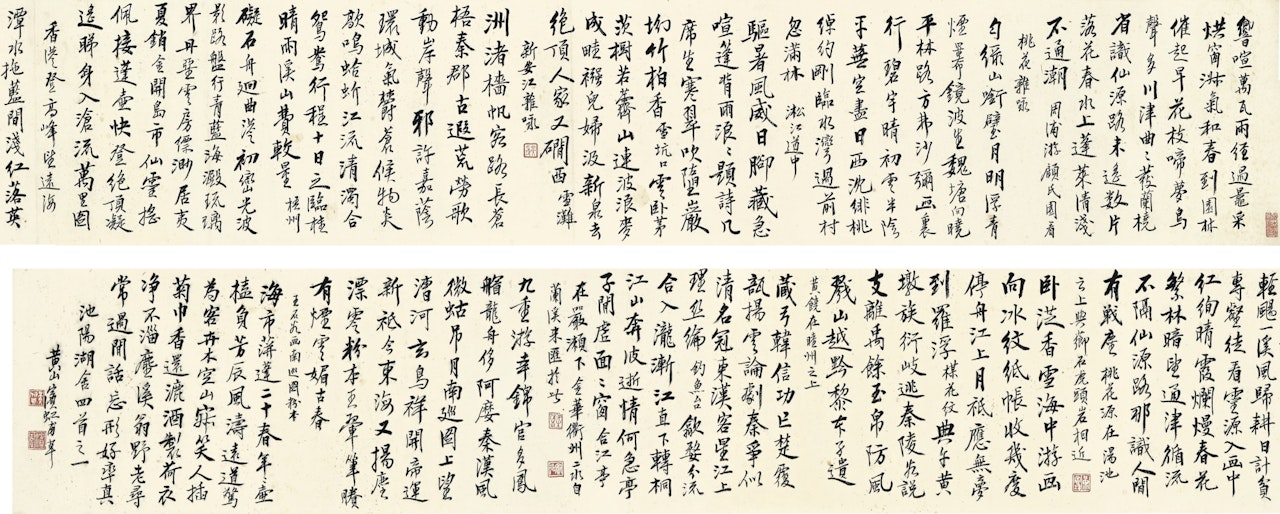 烘窗淑氣和春到園林
催起早花枝啼夢鳥
省識仙源路未遙數片
落花春水上蓬萊清淺
不通潮 周浦游顧氏園看
桃花雜詠
平林路方弗沙彌画裏
行 碧宇晴初雲半陰
平蕪空盡日西沈緋桃
綽約剛臨水灣過前村
忽滿林 淞江道中
驅暑風威日腳藏急
喧篷背雨浪浪題詩几
席生寒翠吹墮巖
拗竹柏香 雪坑口雲卧茅
茨樹若薺山連波浪麥
成畦襁兒婦汲新泉去
絕頂人家又磵西 雪灘
新安江雜詠
洲渚檣帆客路長蒼
梧秦郡古遐荒勞歌
動岸聲邪許嘉蔭
環城氣鬱蒼候物炎
歊鳴蛤蚧江流清濁合
鴛鴦行程十日之臨桂
晴雨溪山費較量 梧州
影路盤行青藍海澱琉璃
界丹堊雲房縹渺居夷
夏銷金開島市仙靈
佩接蓬壺快登絕頂凝
遙睇身入滄流萬里圖
香港登高峰望遠海
潭水拖藍間淺紅落英
輕颸一溪風歸耕日計貧
專壑徒看雲源入画中
紅絢晴霞爛熳春花
繁林暗望通津循流
不隔仙源路那識人間
有戰塵 桃花源在潙池
之上與鄉石虎頭岩相近
卧游香雪海中游画
向冰紋紙帳收幾度
停舟江上月祇應無夢
到羅浮 楳花 典午黃
墩族衍岐逃秦陵谷說
支離禹餘玉帛防風
戮山越黟黎木子遺
黃墩在睦州之上
藏弓韓信功已楚覆
瓿揚雲論劇秦爭似
清名冠東漢客星江上
理絲綸 釣魚台 歙婺分流
合入瀧漸江直下轉桐
江山奔波逝情何急亭
子開虛面面窗 合江亭
在嚴瀨下 金華衢州二水自
蘭溪來匯於此
九重游幸錦官名鳳
艒龍舟侈阿㜑秦漢風
微姑吊月南巡圖上望
漕河 玄鳥祥開帝運
新祇今東海又揚塵
漂零粉本王翬筆賸
有煙雲媚古春
王石谷西南巡圖粉本
海市薄遊二十春年年
榼負芳辰風濤遠道驚
為客丹木空山
笑人插
菊巾香還漉酒製荷衣
淨不淄塵溪翁野老尋
常過閒話忘形好率真
池陽湖舍四首之一